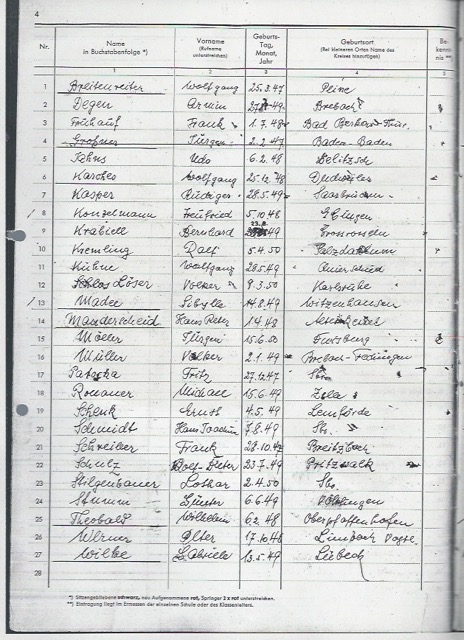 4
Nr. Name in Buchstabenfolge *) Vorname (Rufname unterstreichen) Geburts-Tag, Monat, Jahr Geburtsort (Bei kleineren Orten Name des Kreises hinzufügen) Be-kennt-nis **)
1 2 3 4 5
1 Breitenreiter Wolfgang 25.3.47 Peine
2 Degen Armin Brebach
3 Frühauf Frank 1.7.48 Bad
4 Jürgen 2.2.47 Baden-Baden
5 Jahns Udo 6.2.48 Delitzsch
6 Karches Wolfgang 25.12.48 Dudweiler
7 Kasper Rüdiger 28.5.49 Saarbrücken
8 Konzelmann 5.10.48 Ebingen
9 Krabiell Bernhard Grossrosseln
10 Kremling Ralf 5.4.50 Salzdahlum
11 Kühne Wolfgang 28.5.49
12 Schlos Löser Volker 9.3.50 Karlsruhe
13 Madee Sibylle 14.8.49 Witzenhausen
14 Manderscheid Hans Peter 1.4.48
15 Möller Jürgen 15.6.50
16 Müller Volker 2.1.49
17 Fritz 27.12.47 Sbr.
18 Romauer Michael 15.6.49
19 Schenk Ernst 4.5.49 Lemförde
20 Schmidt Hans Joachim 7.8.49 Sbr.
21 Schreiber Frank
22 Schulz Rolf-Dieter 23.7.49 Pritzwalk
23 Stilgenbauer Lothar 2.4.50 Sbr.
24 Stumm Günter 6.6.49 Völklingen
25 Theobald Wilhelm 6.2.48 Oberpfaffenhofen
26 Werner 17.10.48 Limbach
27 Wilke Gabriele 13.5.49 Lübeck
28
*) Sitzengebliebene schwarz, neu Aufgenommene rot, Springer 2 x rot unterstreichen.
**) Eintragung liegt im Ermessen der einzelnen Schule oder des Klassenleiters.